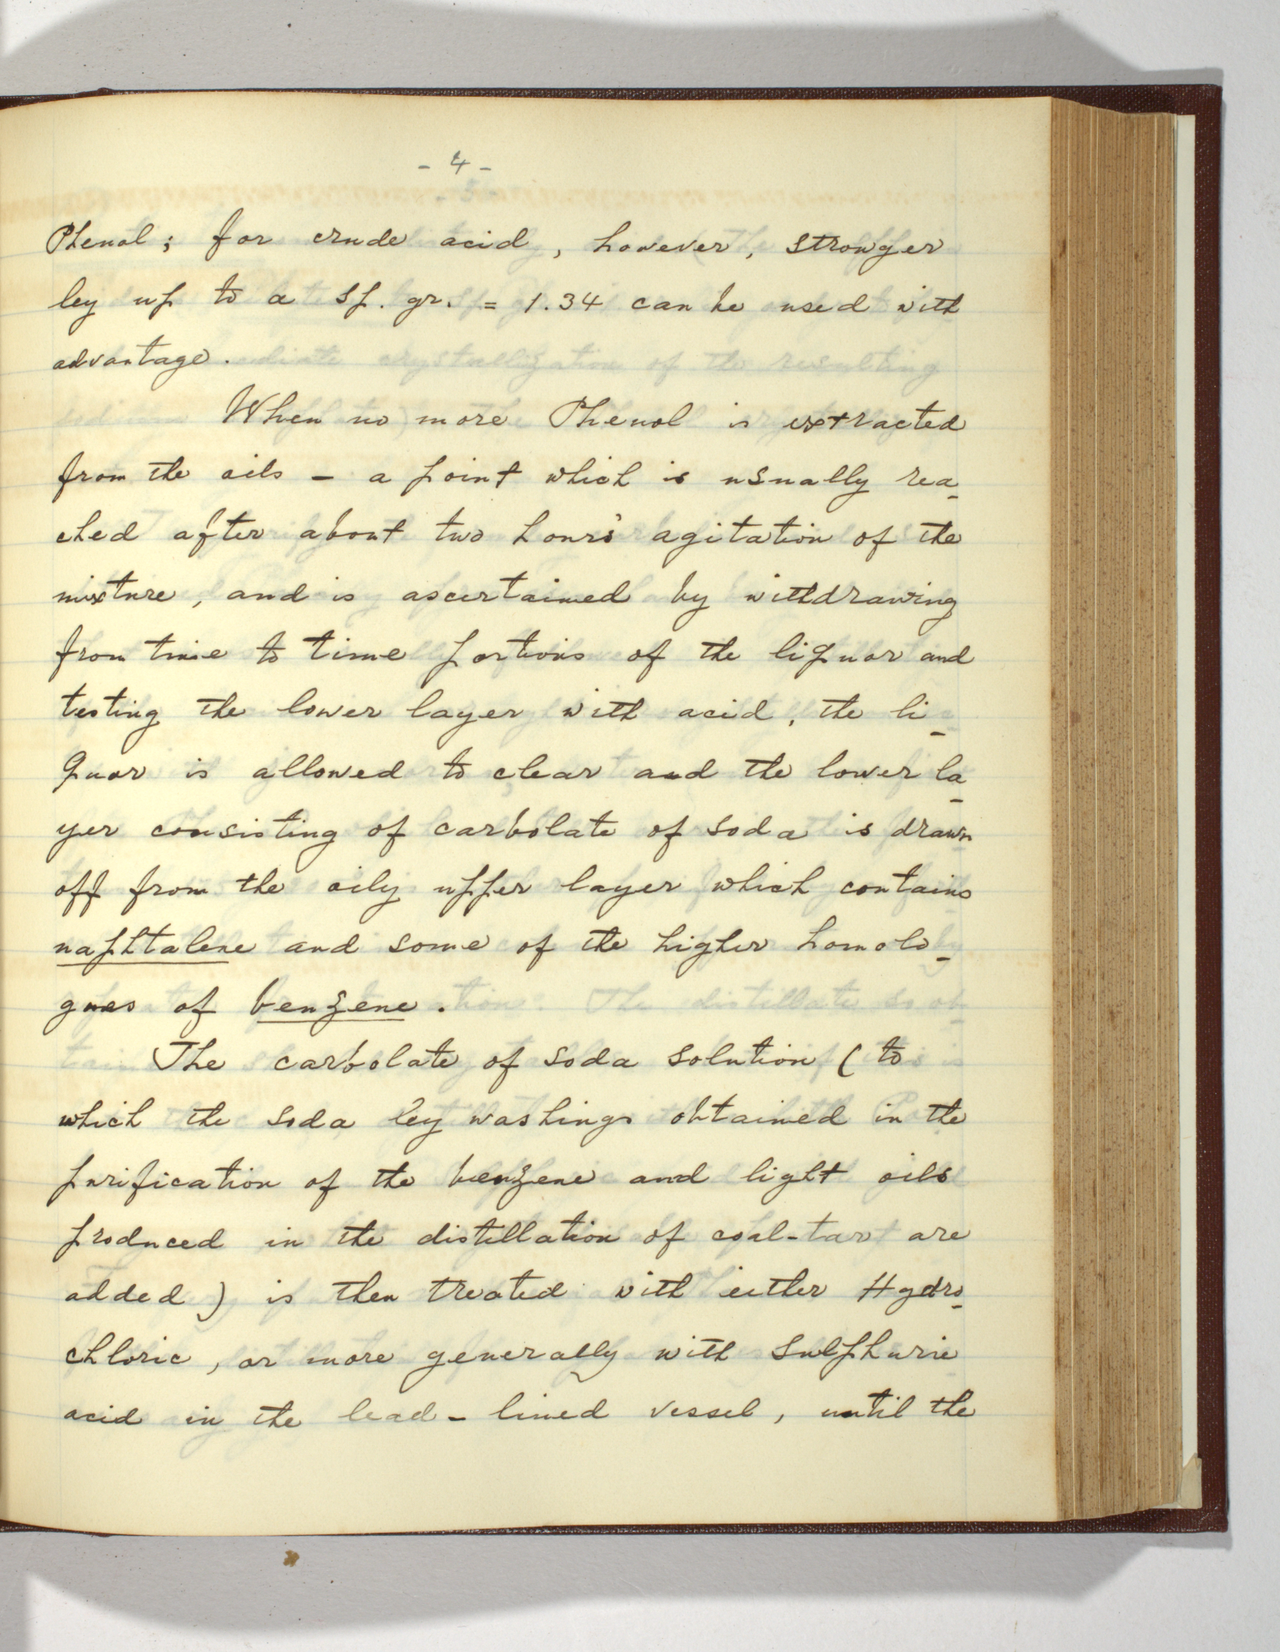 - 4 -
Phenol; for crude acid, however, stronger
ley up to a sp. gr. = 1.34 can be used with
advantage.
When no more Phenol is extracted
from the oils - a point which is usually rea-
ched after about two hours' agitation of the
mixture, and is ascertained by withdrawing
from time to time portions of the liquor and
testing the lower layer with acid, the li-
quor is allowed to clear and the lower la-
yer consisting of carbolate of soda is drawn
off from the oily upper layer which contains
naphtalene and some of the higher homolo-
gues of benzene.
The carbolate of soda solution (to
which the soda ley washings obtained in the
purification of the benzene and light oils
produced in the distillation of coal-tar are
added) is then treated with either Hydro-
chloric, or more generally with Sulphuric
acid in the lead-lined vessel, until the